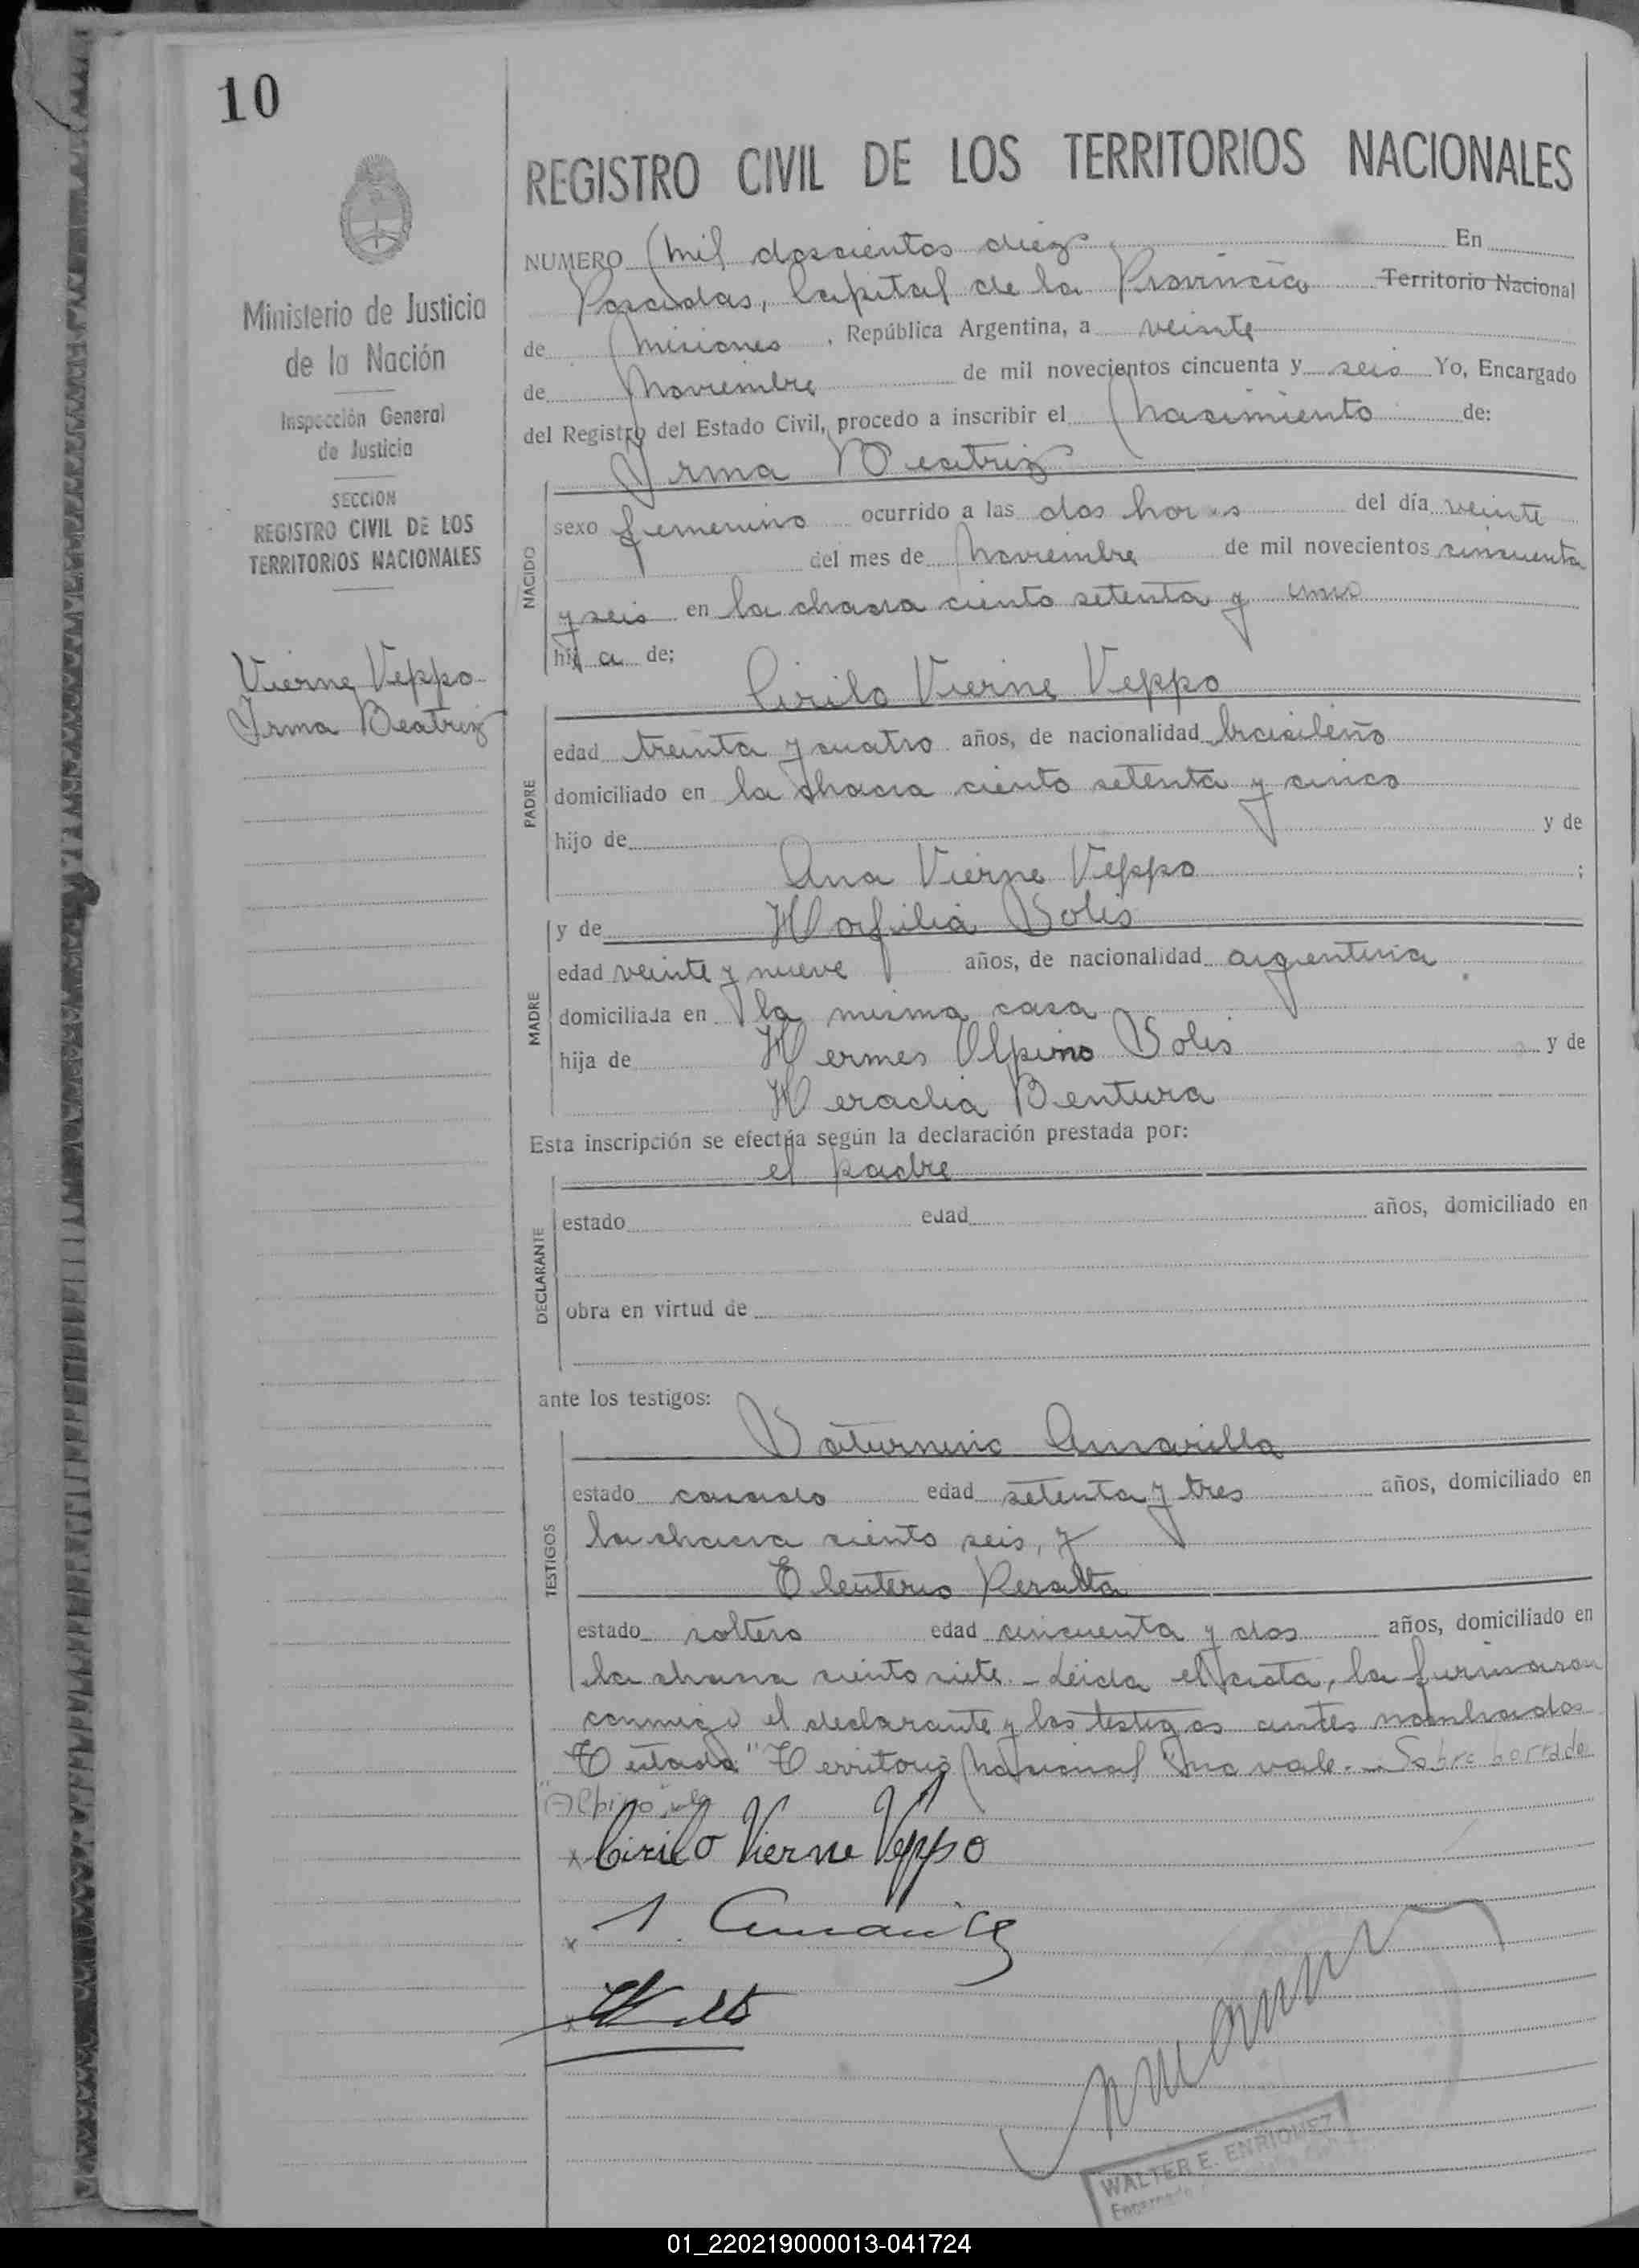 10
REGISTRO CIVIL DE LOS TERRITORIOS NACIONALES
Ministerio de Justicia
de la Nación
Inspección General
de Justicia
SECCION
REGISTRO CIVIL DE LOS
TERRITORIOS NACIONALES
Vierne Veppo
Irma Beatriz
NUMERO mil doscientos diez En
Posadas, Capital de la Provincia Territorio Nacional
de Misiones, República Argentina, a veinte
de Noviembre de mil novecientos cincuenta y seis Yo, Encargado
del Registro del Estado Civil, procedo a inscribir el Nacimiento de:
Irma Beatriz
NACIDO
sexo femenino ocurrido a las dos horas del día veinte
del mes de Noviembre de mil novecientos cincuenta
y seis en la chacra ciento setenta y uno
hija de:
Cirilo Vierne Veppo
PADRE
edad treinta y cuatro años, de nacionalidad brasileño
domiciliado en la chacra ciento setenta y cinco
hijo de y de
Ana Vierne Veppo ;
MADRE
y de Horfilia Solis
edad veinte y nueve años, de nacionalidad argentina
domiciliada en la misma casa
hija de Hermes Alpino Solis y de
Heraclia Bentura
Esta inscripción se efectúa según la declaración prestada por:
el padre
DECLARANTE
estado edad años, domiciliado en
obra en virtud de
ante los testigos:
TESTIGOS
Saturnino Amarilla
estado casado edad setenta y tres años, domiciliado en
la chacra ciento seis, y
Eleuterio Peralta
estado soltero edad cincuenta y dos años, domiciliado en
la chacra ciento siete - Leida el acta, la firmaron
conmigo el declarante y los testigos antes nombrados
Testado "Territorio Nacional" no vale. - Sobre borrado
"Alpino" vale
x Cirilo Vierne Veppo
x
x
WALTER E. ENRIQUEZ
01_220219000013-041724